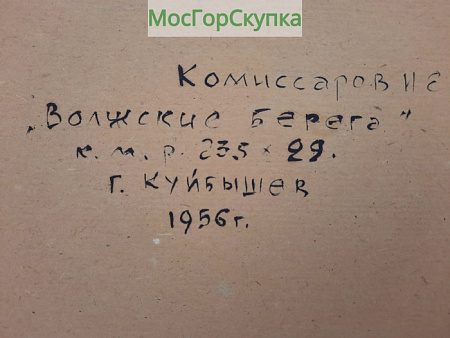 МосГорСкупка
Комиссаров И Е
„Волжские берега"
к. м. р. 23,5 × 29.
г. Куйбышев
1956 г.